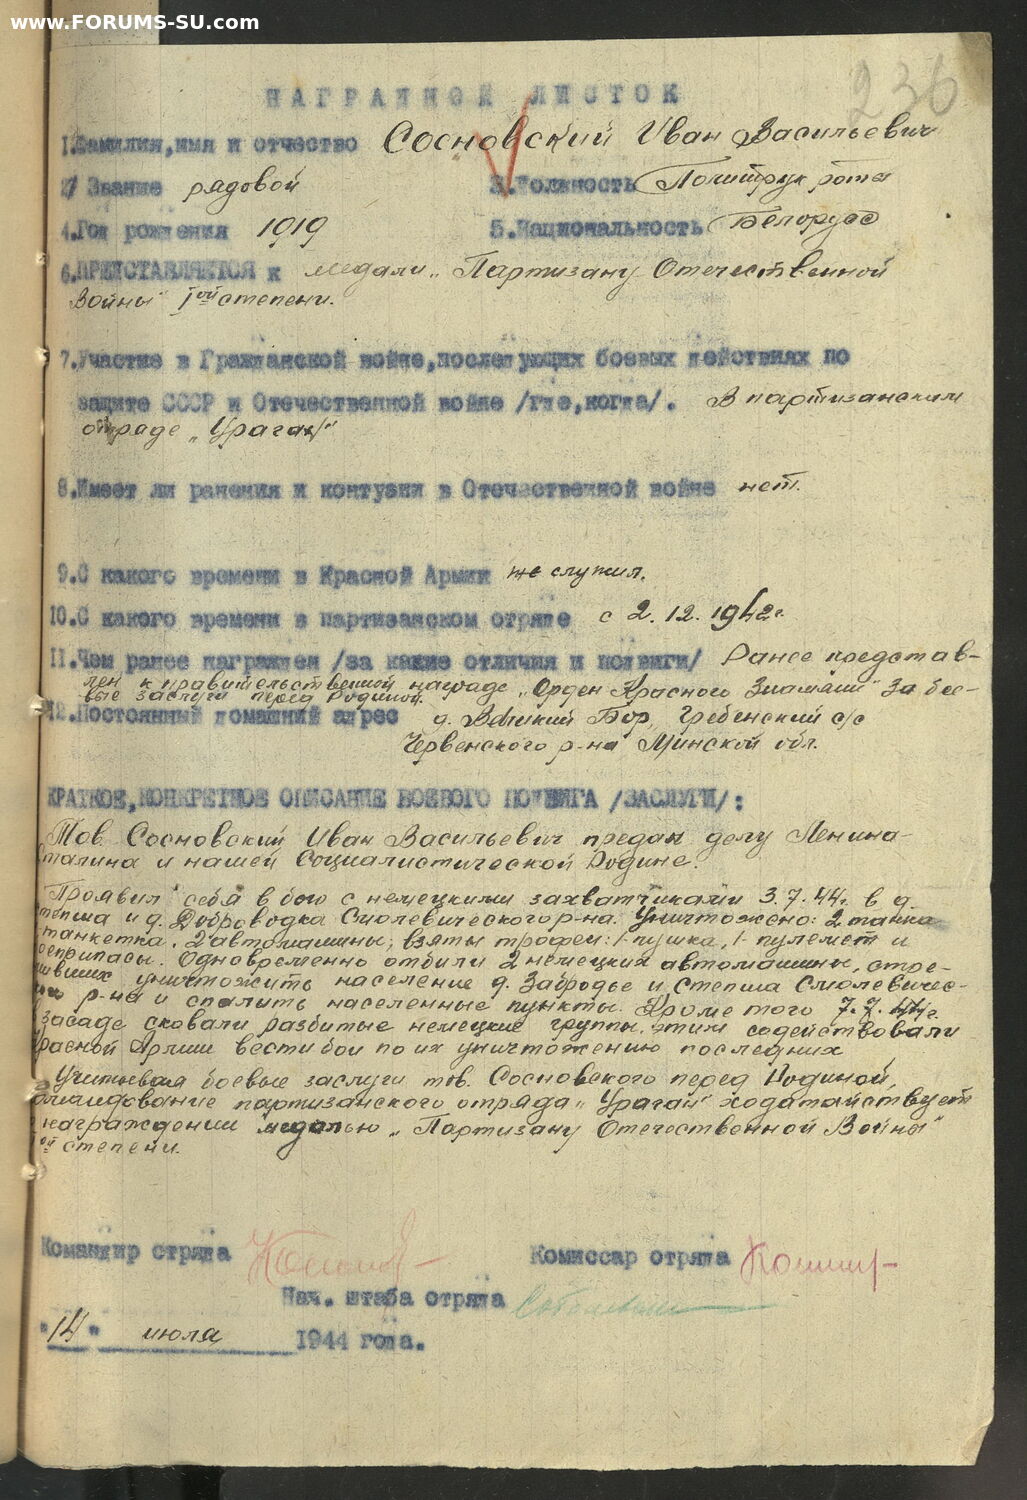 www.FORUMS-SU.com
236
НАГРАДНОЙ ЛИСТОК
1.Фамилия,имя и отчество Сосновский Иван Васильевич
2/ Звание рядовой 3.Должность Политрук роты
4.Год рождения 1919 5.Национальность Белорусс
6.ПРЕДСТАВЛЯЕТСЯ к медали „Партизану Отечественной
Войны" Iой степени.
7.Участие в Гражданской войне,последующих боевых действиях по
защите СССР и Отечественной войне /где,когда/. В партизанским
отраде „Ураган"
8.Имеет ли ранения и контузии в Отечественной войне нет.
9.С какого времени в Красной Армии не служил.
10.С какого времени в партизанском отряде с 2.12.1942г
11.Чем ранее награжден /за какие отличия и подвиги/ Ранее представ-
лен к правительственной награде „Орден Красного Знамени" За бое-
вые заслуги перед Родиной.
12.Постоянный домашний адрес д. Великий Бор, Гребенский с/с
Червенского р-на Минской обл.
КРАТКОЕ,КОНКРЕТНОЕ ОПИСАНИЕ БОЕВОГО ПОДВИГА /ЗАСЛУГИ/:
Тов. Сосновский Иван Васильевич предан делу Ленина-
Сталина и нашей Социалистической Родине.
Проявил себя в бою с немецкими захватчиками 3.7.44г. в д.
Степша и д. Доброводка Смолевического р-на. Уничтожено: 2 танка
танкетка, 2 автомашины; взяты трофеи: 1-пушка, 1-пулемет и
боеприпасы. Одновременно отбили 2 немецких автомашины, стре-
мивших уничтожить население д. Забродье и Степша Смолевичес-
кого р-на и спалить населенные пункты. Кроме того 7.7.44г.
в засаде сковали разбитые немецкие группы, этим содействовали
Красной Армии вести бои по их уничтожению последних
Учитывая боевые заслуги тов. Сосновского перед Родиной,
командование партизанского отряда „Ураган" ходатайствует
награждении медалью „Партизану Отечественной Войны"
ой степени.
Командир отряда Комиссар отряда
Нач. штаба отряда
"14" июля 1944 года.